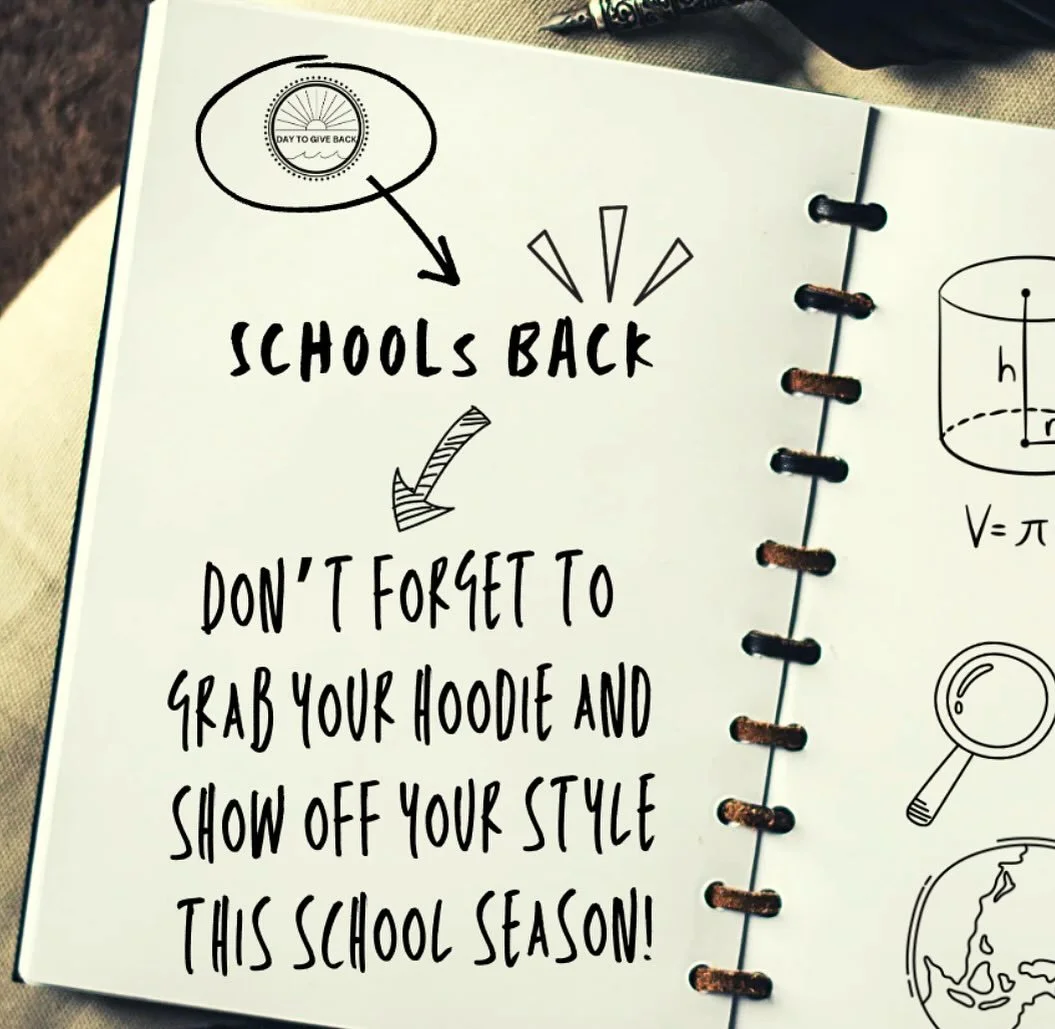 DAY TO GIVE BACK
SCHOOLS BACK
DON'T FORGET TO
GRAB YOUR HOODIE AND
SHOW OFF YOUR STYLE
THIS SCHOOL SEASON!
h
r
V= π